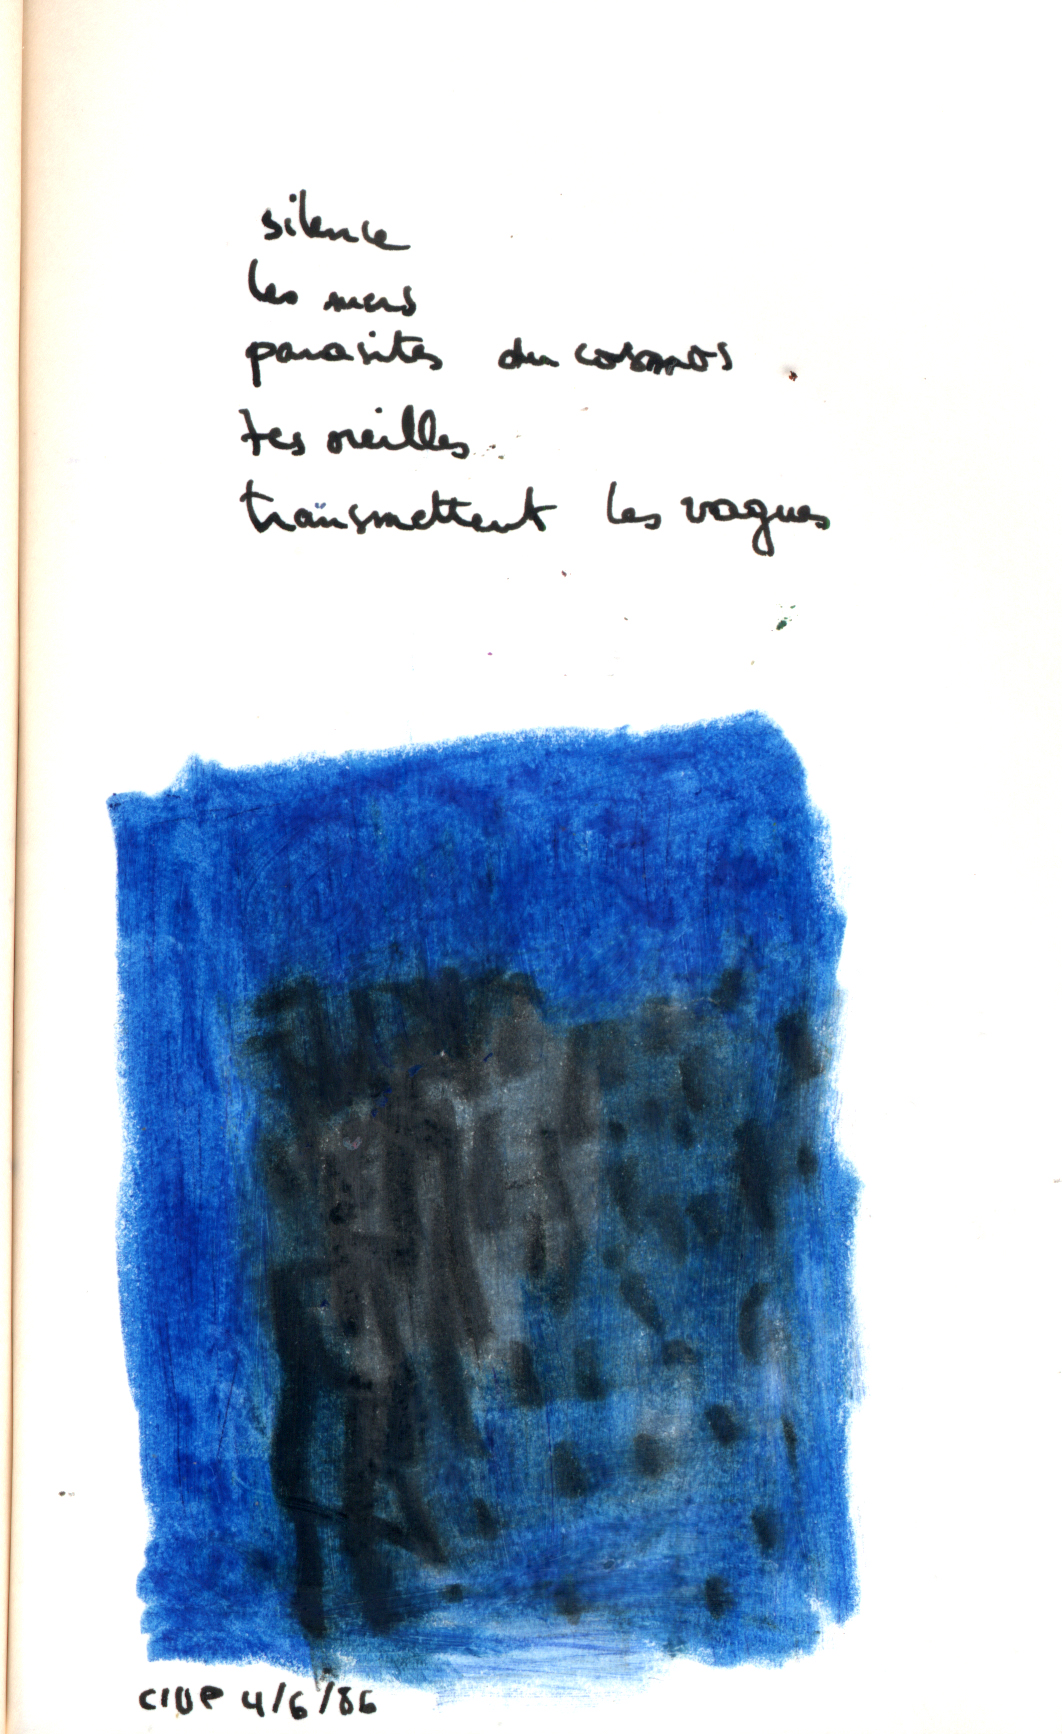 silence
les mers
parasites du cosmos
tes oreilles
transmettent les vagues
CIUP 4/6/86